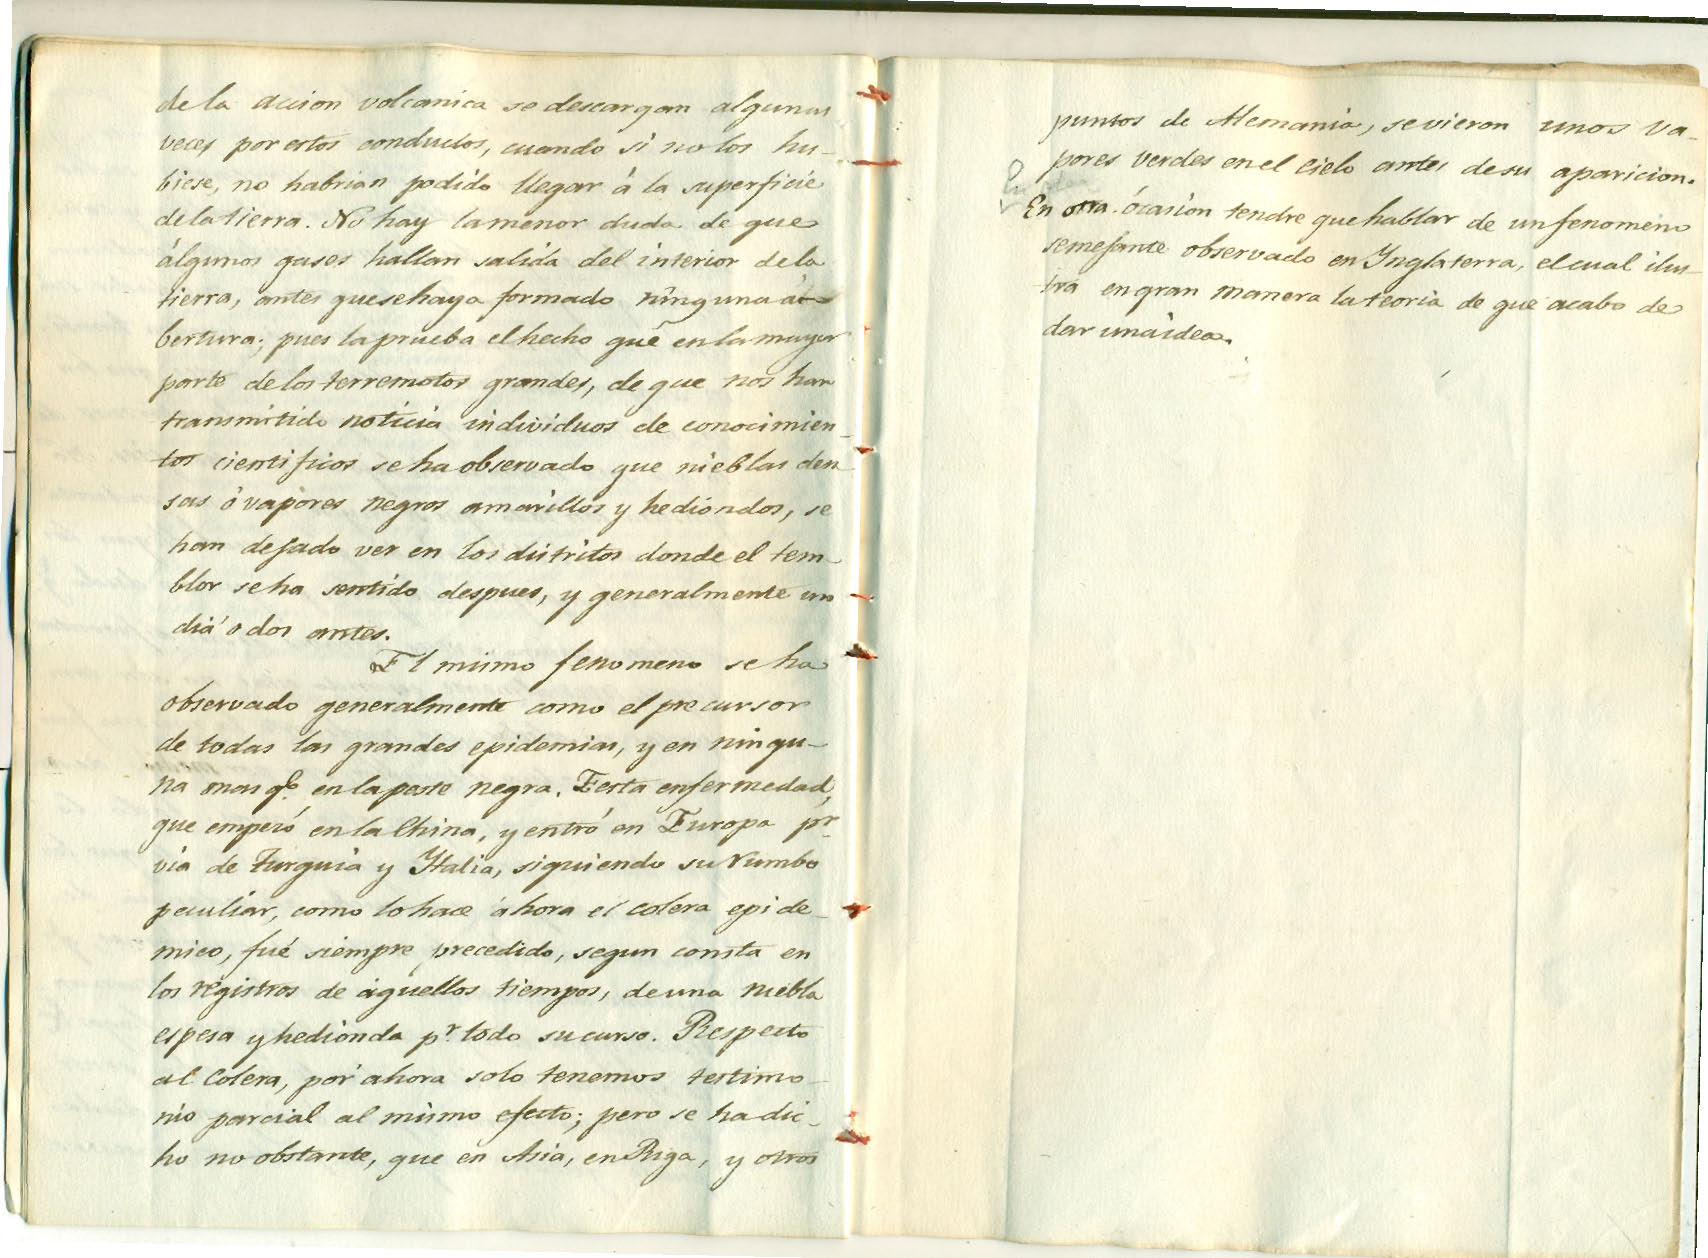 de la accion volcanica se descargan algunas
veces por estos conductos, cuando si no los hu-
biese, no habrian podido llegar á la superficie
de la tierra. No hay la menor duda de que
álgunos gases hallan salida del interior de la
tierra, antes que se haya formado ninguna a-
bertura; pues la prueba el hecho que en la mayor
parte de los terremotos grandes, de que nos han
transmitido noticia individuos de conocimien-
tos cientificos se ha observado que nieblas den
sas ó vapores negros amarillos y hediondos, se
han dejado ver en los distritos donde el tem-
blor se ha sentido despues, y generalmente un
dia ó dos antes.
El mismo fenomeno se ha
observado generalmente como el precursor
de todas las grandes epidemias, y en ningu-
na mas qe. en la peste negra. Eesta enfermedad,
que empezó en la China, y entró en Europa pr
via de Turquia y Ytalia, siguiendo su rumbo
peculiar, como lo hace ahora el colera epide-
mico, fué siempre precedido, segun consta en
los registros de aquellos tiempos, de una niebla
espesa y hedionda pr. todo su curso. Respecto
al Colera, por ahora solo tenemos testimo-
nio parcial al mismo efecto; pero se ha dic-
ho no obstante, que en Asia, en Riga, y otros
puntos de Alemania, se vieron unos va-
pores verdes en el Cielo antes de su aparicion.
En otra ócasion tendre que hablar de un fenomeno
semejante observado en Ynglaterra, el cual ilus-
tra en gran manera la teoria de que acabo de
dar una idea.